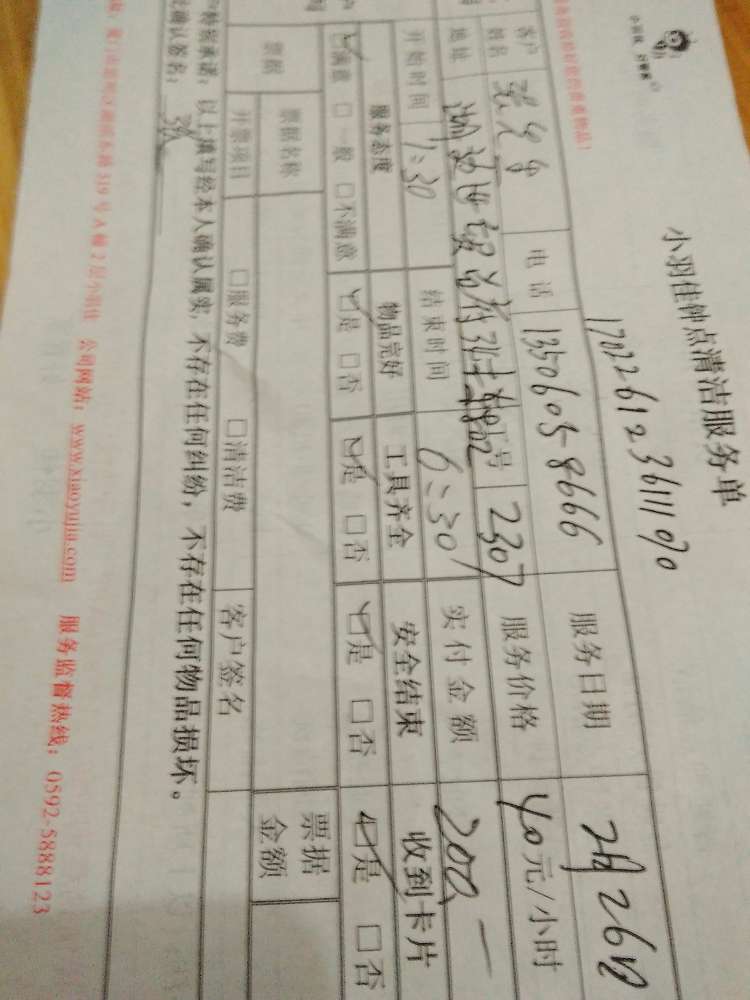 小羽佳 好管家
小羽佳钟点清洁服务单
客户
姓名
电话 13506058666 服务日期 2月26日
地址 工号 2307 服务价格 40元/小时
开始时间 1:30 结束时间 6:30 实付金额 200一
服务态度 物品完好 工具齐全 安全结束 收到卡片
满意 □一般 □不满意 是 □否 是 □否 是 □否 是 □否
票据 票据名称 票据
金额
开票项目 □服务费 □清洁费 客户签名
特别承诺：以上填写经本人确认属实，不存在任何纠纷，不存在任何物品损坏。
确认签名：
339号A幢2层小羽佳 公司网站：www.xiaoyujia.com 服务监督热线：0592-5888123